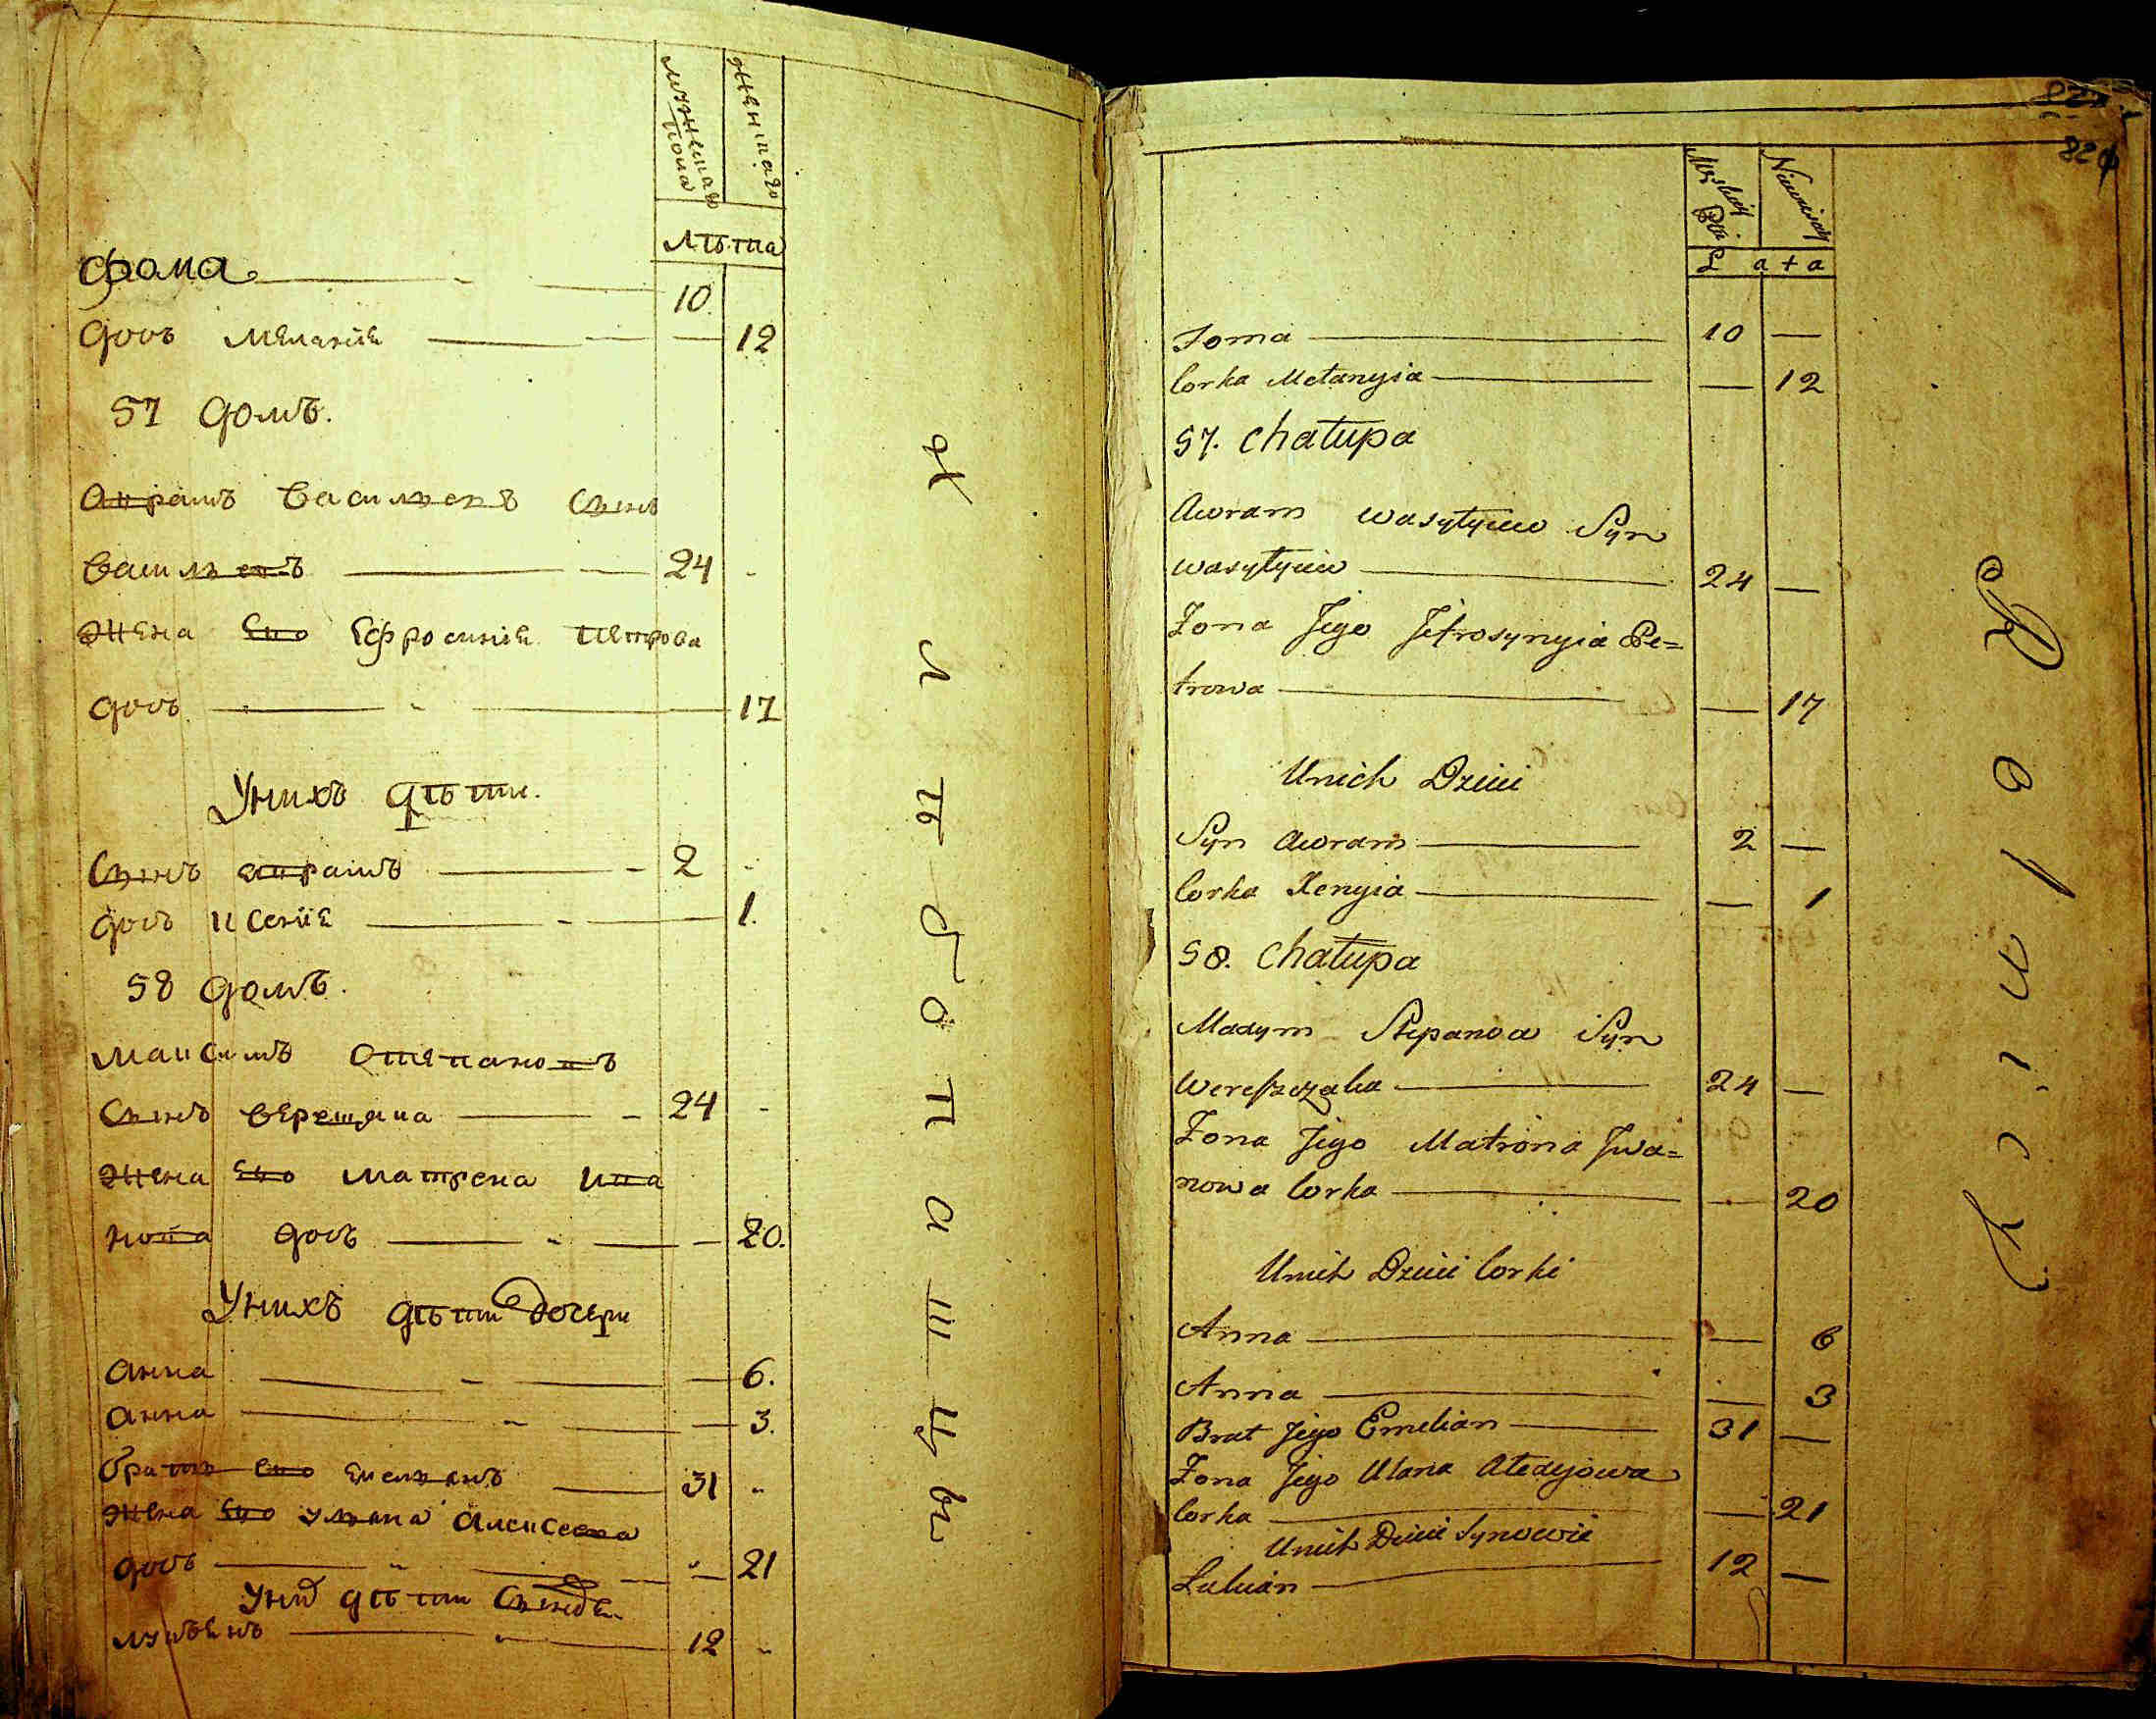 мужеска
пола
женскаго
лѣта
Фома 10
дочь Меланiе 12
57 домъ.
Аврамъ Васильевъ Сынъ
Васильевъ 24
Жена Его Ефросинiе Петрова
дочь 17
Унихъ дѣти.
Сынъ аврамъ 2
дочь Ксенiе 1.
58 домъ.
Максимъ Степановъ
Сынъ Верещака 24
Жена Его Матрена Ива
нова дочь 20.
Унихъ дѣти дочери
Анна 6.
Анна 3.
братъ Его Емельянъ 31
Жена Его Ульяна Алексеева
дочь 21
дѣти
Лукьянъ 12
хлѣбопашцы
82
Męskiej
Płci
L a t a
Foma 10 —
Corka Mełanyia — 12
57. Chałupa
Awram Wasylyiew Syn
Wasylyiew 24 —
Zona Jego Jefrosynyia Pe=
trowa — 17
Unich Dzieci
Syn Awram 2 —
Corka Xenyia — 1
58. Chałupa
Stepanoa Syn
Wereszczaka 24 —
Zona Jego Matrona Jwa=
nowa Corka — 20
Unich Dzieci Corki
Anna — 6
Anna — 3
Brat Jego Emelian 31 —
Zona Jego Ulana
Corka — 21
Unich Dzieci Synowie
Lukian 12 —
Rolnicy